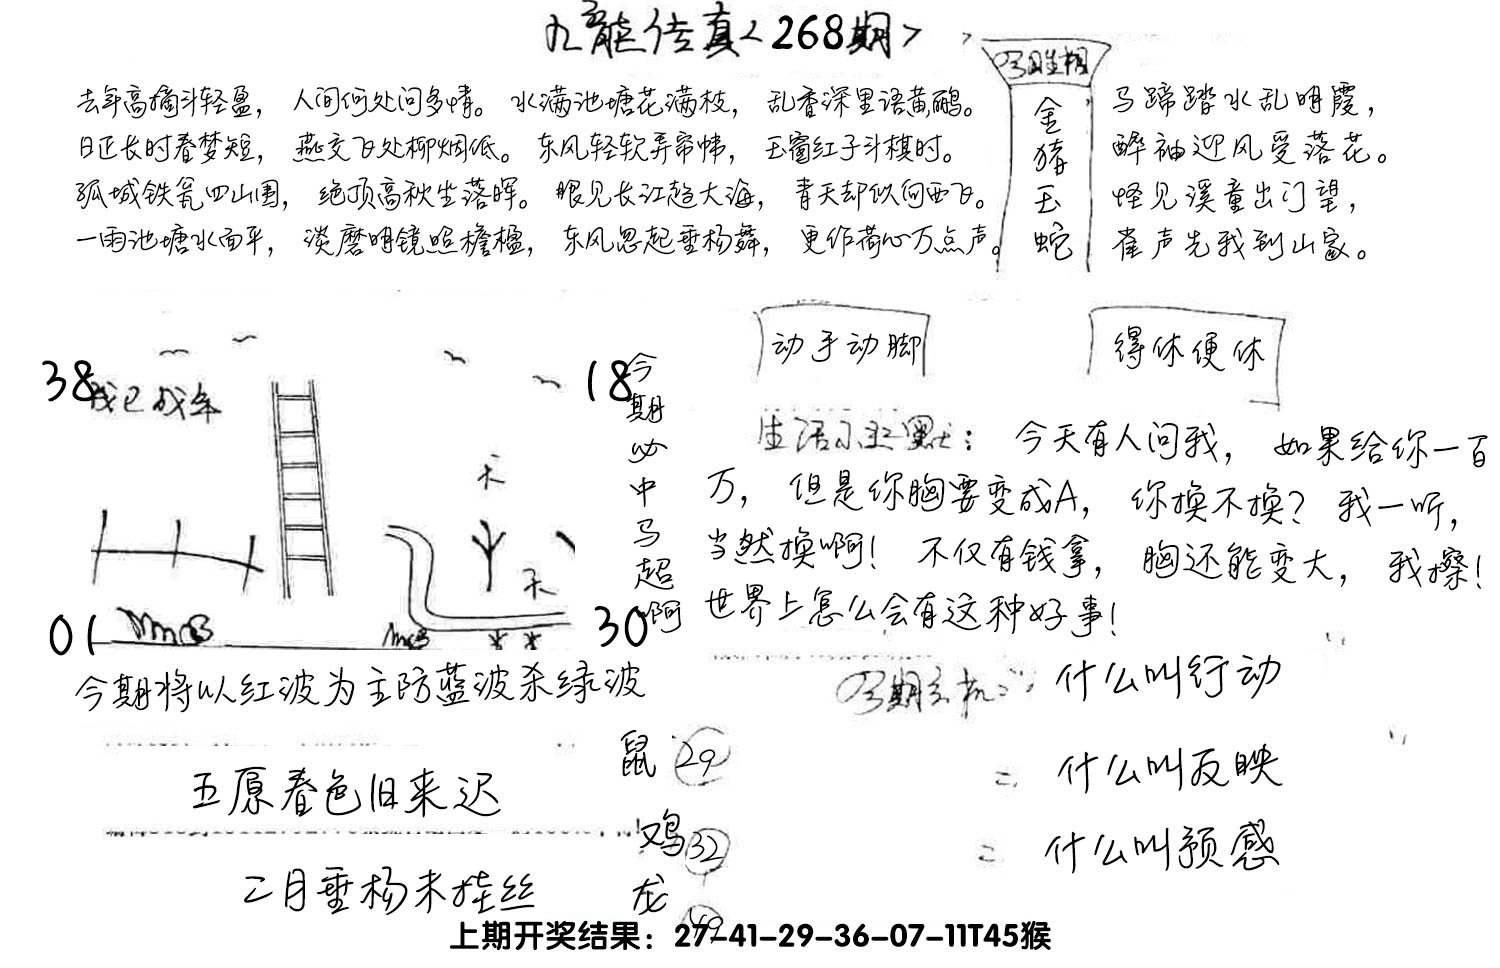 九龙传真<268期>
今日生相
去年高摘斗轻盈，人间何处问多情。水满池塘花满枝，乱香深里语黄鹂。
日正长时春梦短，燕交飞处柳烟低。东风轻软弄帘帏，玉窗红子斗棋时。
孤城铁瓮四山围，绝顶高秋坐落晖。眼见长江趋大海，青天却似向西飞。
一雨池塘水面平，淡磨明镜照檐楹，东风忽起垂杨舞，更作荷心万点声。
金猪玉蛇
马蹄踏水乱明霞，
醉袖迎风受落花。
怪见溪童出门望，
雀声先我到山家。
动手动脚
得休便休
38
18
01
30
天
天
今期必中马超啊
生活小幽默：今天有人问我，如果给你一百
万，但是你胸要变成A，你换不换？我一听，
当然换啊！不仅有钱拿，胸还能变大，我擦！
世界上怎么会有这种好事！
今期将以红波为主防蓝波杀绿波
今期玄机：什么叫行动
什么叫反映
什么叫预感
五原春色旧来迟
二月垂杨未挂丝
鼠 29
鸡 32
龙 49
上期开奖结果：27-41-29-36-07-11T45猴